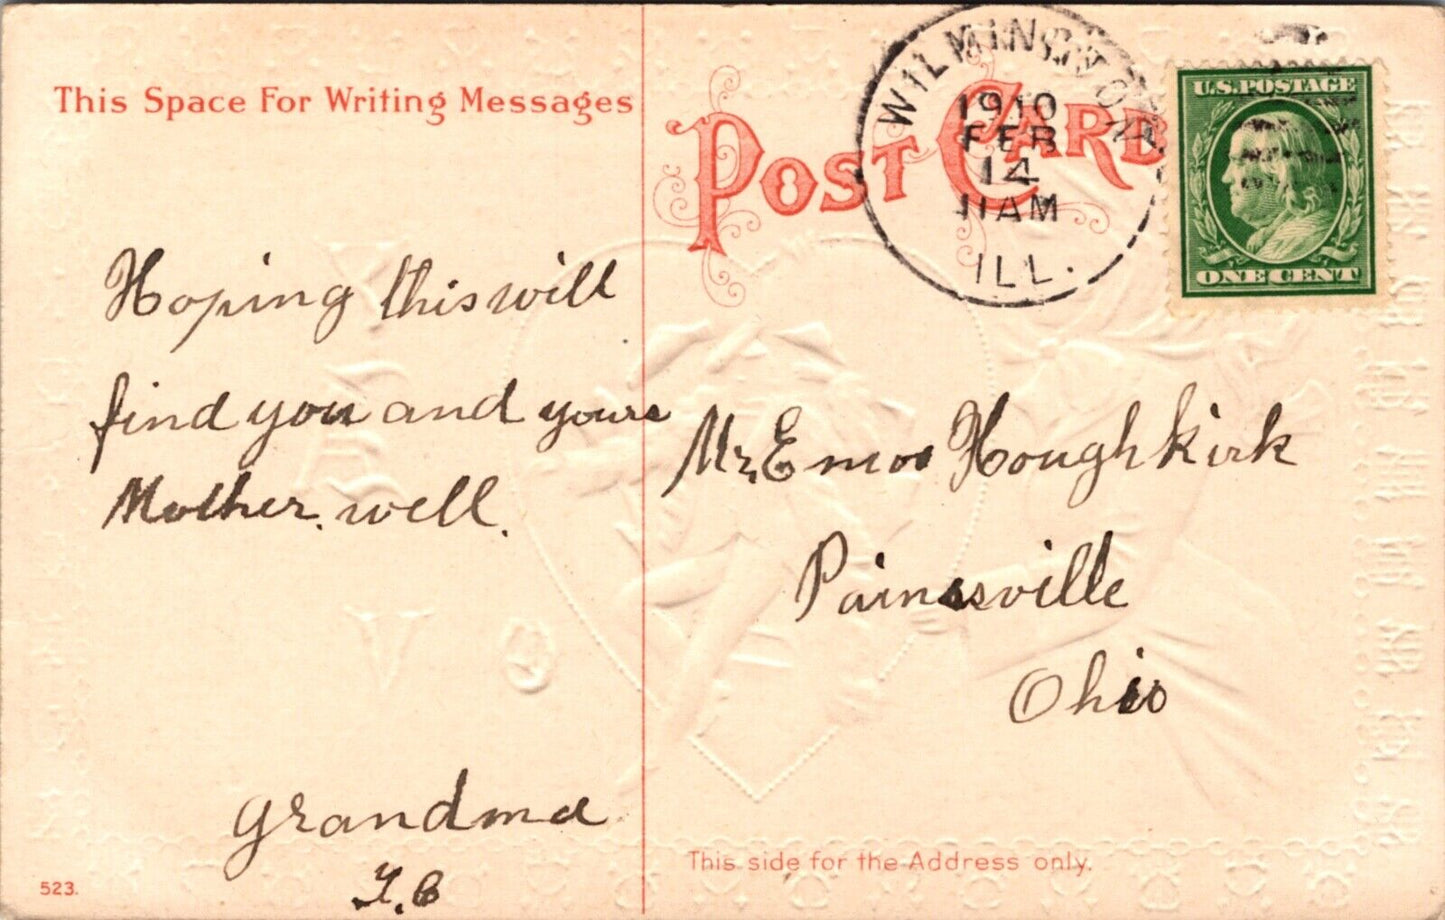 This Space For Writing Messages
POST CARD
WILMINGTON
1910
FEB
14
11 AM
ILL.
U.S. POSTAGE
ONE CENT
Hoping this will
find you and yours
Mother. well.
grandma
Mr, Emos Houghkirk
Painesville
Ohio
This side for the Address only.
523.